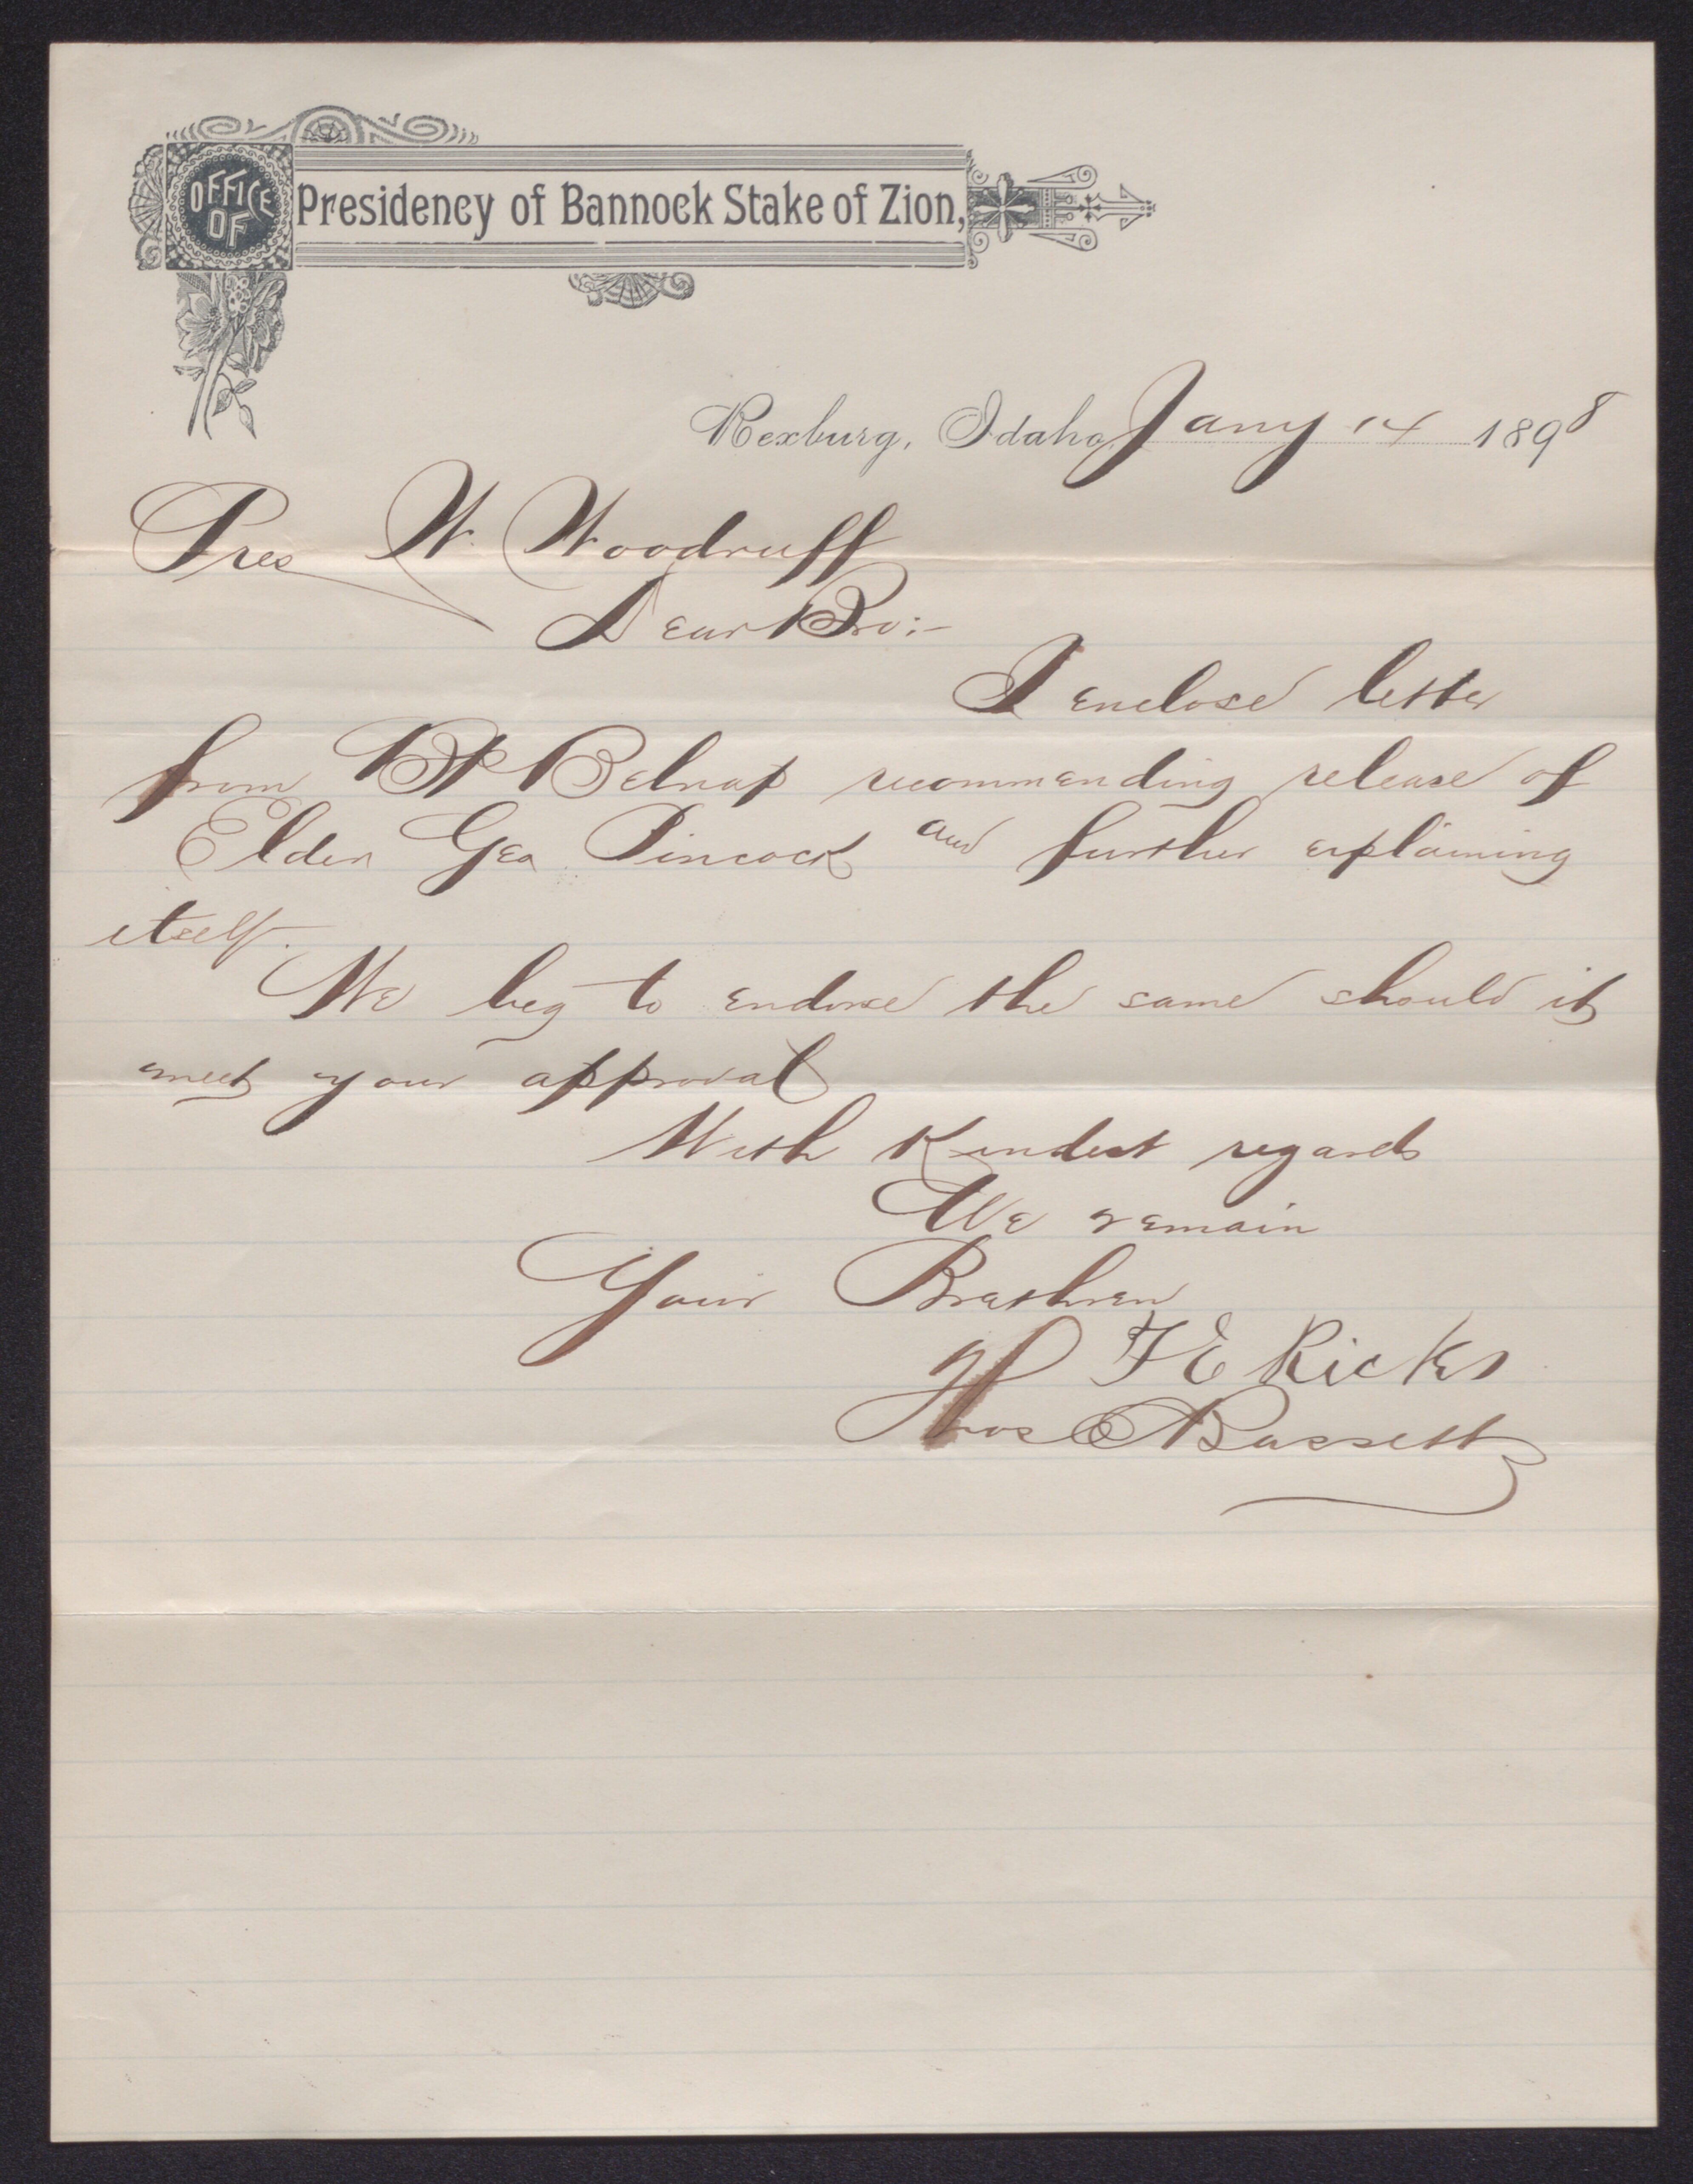 OFFICE OF Presidency of Bannock Stake of Zion,
Rexburg, Idaho, Jany 14 1898
Pres W. Woodruff
Dear Bro:-
I enclose letter
from Bp Belnap recommending release of
Elder Geo Pincock and further explaining
itself.
We beg to endorse the same should it
meet your approval
With Kindest regards
We remain
Your Brethren
T E Ricks
Thos E Bassett